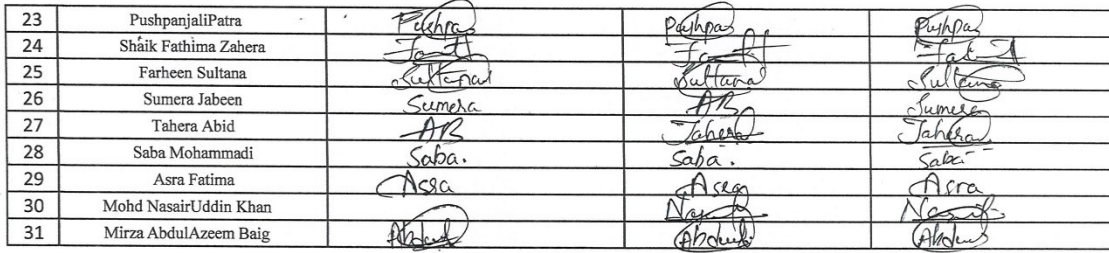 23 PushpanjaliPatra Pushpa Pushpa Pushpa
24 Shaik Fathima Zahera
25 Farheen Sultana Sultana Sultana Sultana
26 Sumera Jabeen Sumera AB Sumera
27 Tahera Abid AB Tahera Tahera
28 Saba Mohammadi Saba. Saba. Saba
29 Asra Fatima Asra Asra Asra
30 Mohd NasairUddin Khan
31 Mirza AbdulAzeem Baig Abdul Abdul Abdul